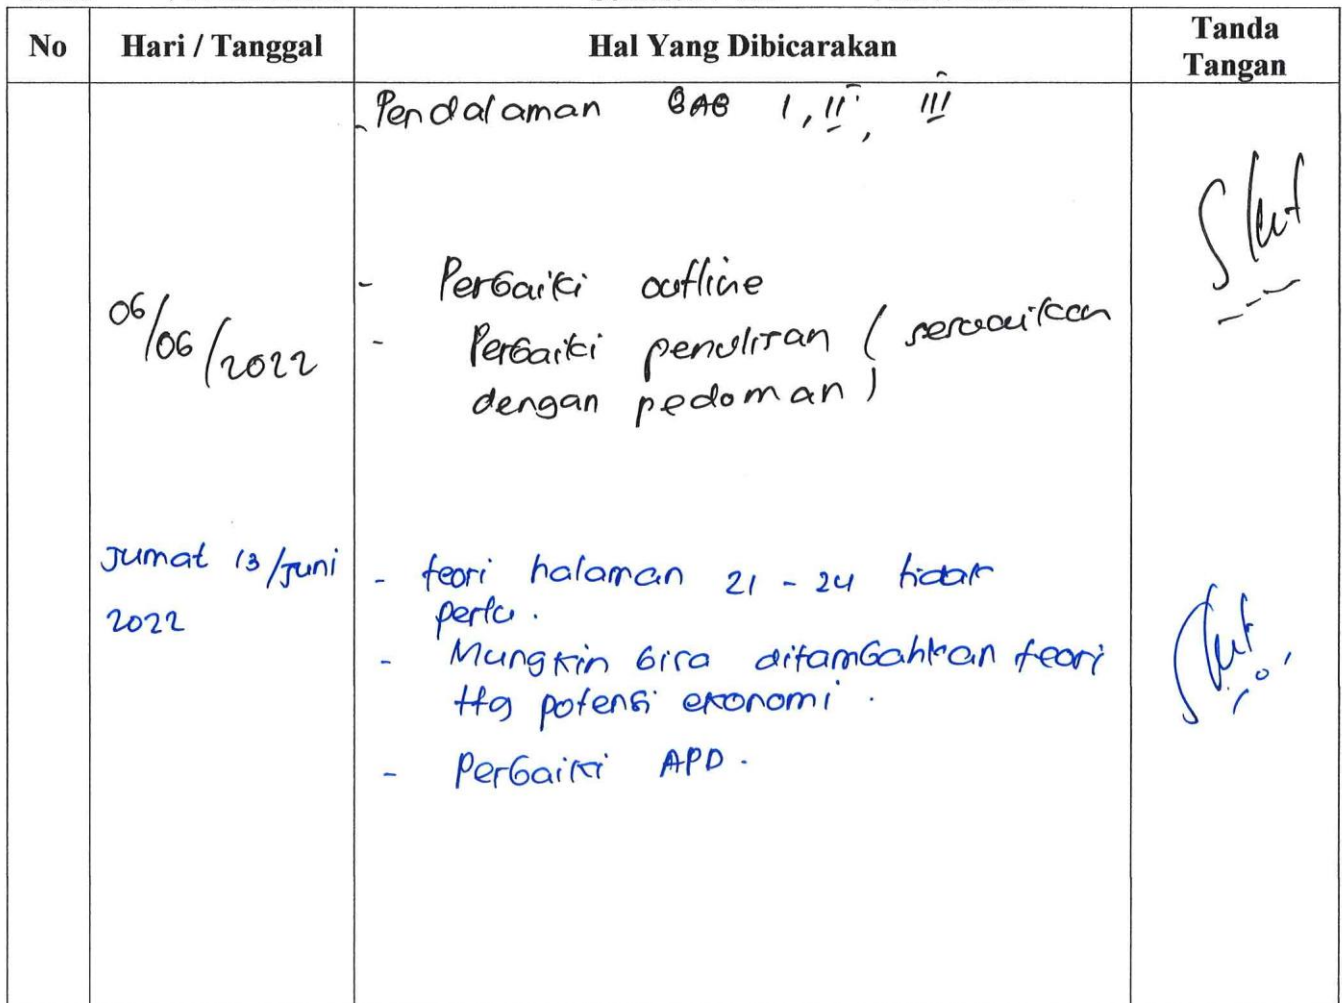 No Hari / Tanggal Hal Yang Dibicarakan Tanda Tangan
- Pendalaman BAB I, II, III
06/06/2022
- Perbaiki outline
- Perbaiki penulisan ( sesuaikan
dengan pedoman )
Jumat 13/Juni
2022
- teori halaman 21 - 24 tidak
perlu.
- Mungkin bisa ditambahkan teori
ttg potensi ekonomi.
- Perbaiki APD.